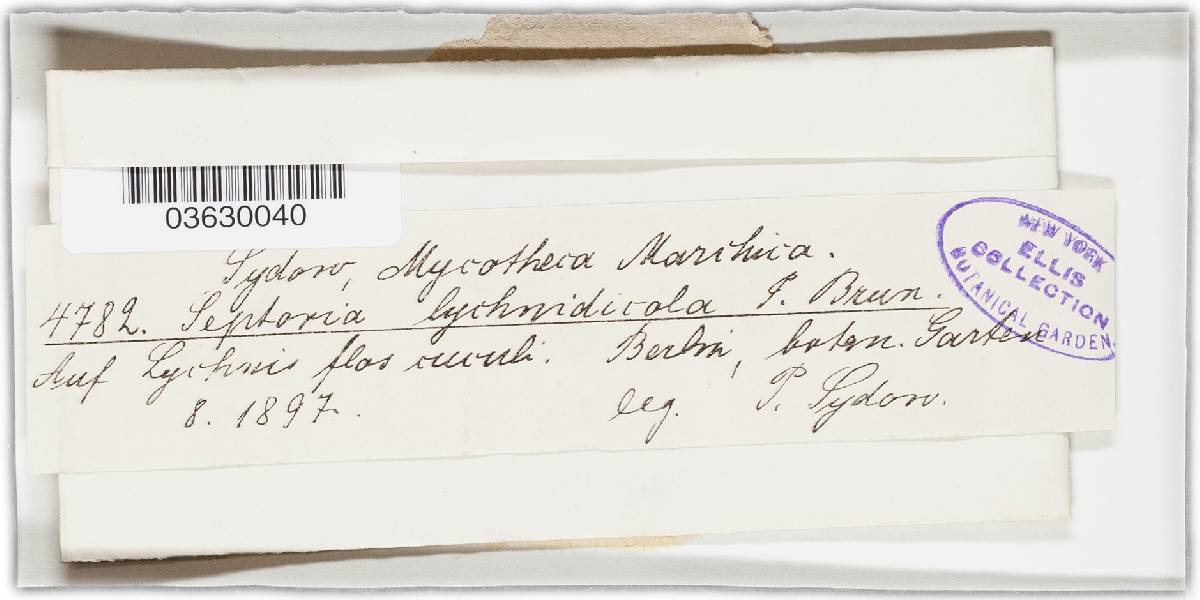 03630040
Sydow, Mycotheca Marchica.
4782. Septoria lychnidicola P. Brun.
Auf Lychnis flos cuculi. Berlin, botan. Garten
8. 1897.
leg. P. Sydow.
NEW YORK
ELLIS
COLLECTION
BOTANICAL GARDEN